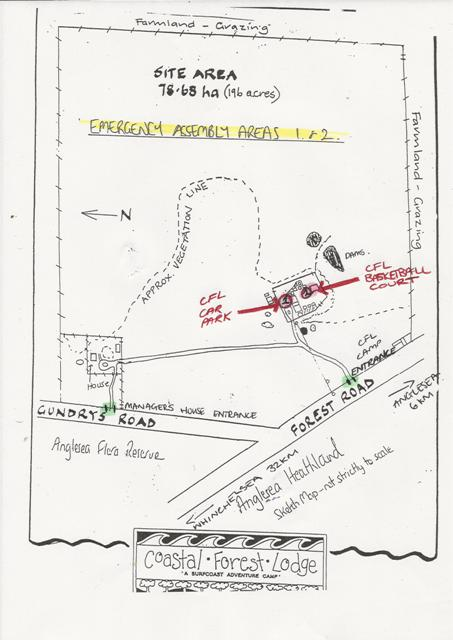 Farmland - Grazing
SITE AREA
78.68 ha (196 acres)
EMERGENCY ASSEMBLY AREAS 1 & 2.
Farmland - Grazing
N
APPROX. VEGETATION LINE
DAMS.
CFL
BASKETBALL
COURT
CFL
CAR
PARK
CFL
CAMP
ENTRANCE
House
MANAGER'S HOUSE ENTRANCE
GUNDRYS ROAD
FOREST ROAD
ANGLESEA
6 KM
Anglesea Flora Reserve
WHINCHELSEA 32KM
Anglesea Heathland
Sketch Map - not strictly to scale
Coastal · Forest · Lodge
"A SURFCOAST ADVENTURE CAMP"